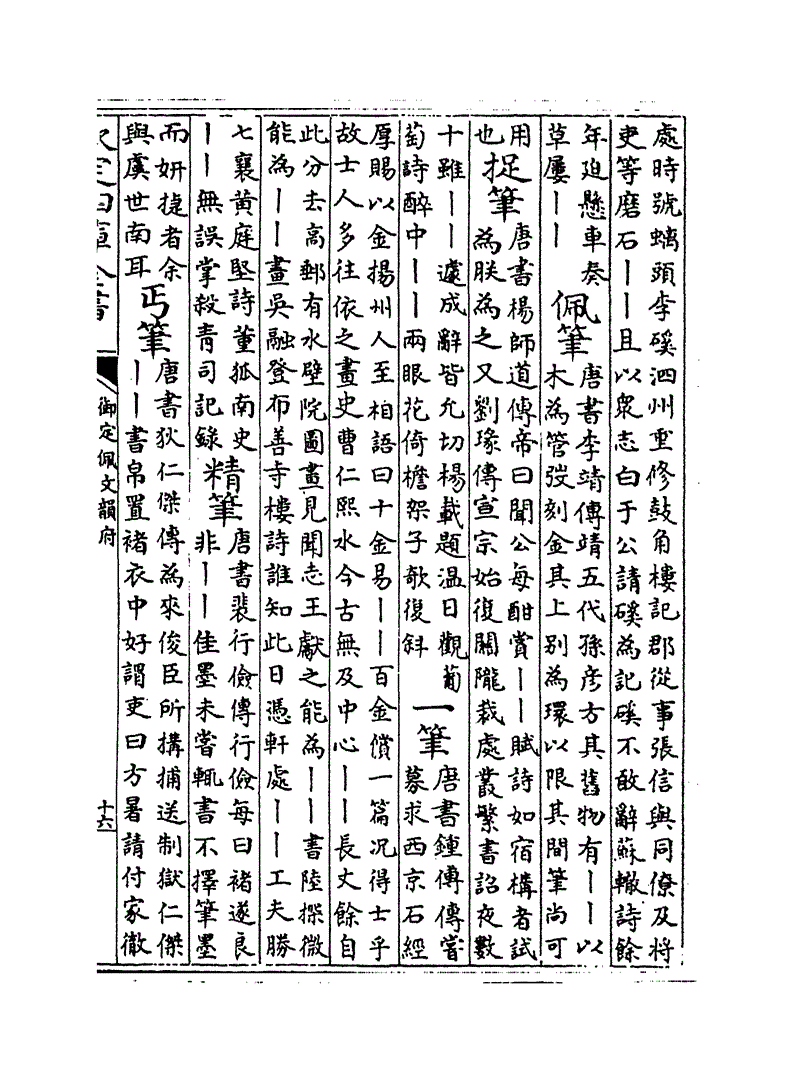 處時號螭頭李磎泗州重修鼓角樓記郡從事張信與同僚及將
吏等磨石丨丨且以衆志白于公請磎為記磎不敢辭蘇轍詩餘
年迫懸車奏
草屢丨丨
佩筆
唐書李靖傳靖五代孫彦方其舊物有丨丨以
木為管弢刻金其上别為環以限其間筆尚可
用
也
捉筆
唐書楊師道傳帝曰聞公每酣賞丨丨賦詩如宿構者試
為朕為之又劉瑑傳宣宗始復關隴裁處叢繁書詔夜數
十雖丨丨遽成辭皆允切楊載題温日觀葡
萄詩醉中丨丨兩眼花倚檐架子欹復斜
一筆
唐書鍾傅傳嘗
募求西京石經
厚賜以金揚州人至相語曰十金易丨丨百金償一篇況得士乎
故士人多往依之畫史曹仁熙水今古無及中心丨丨長丈餘自
此分去高郵有水壁院圖畫見聞志王獻之能為丨丨書陸探微
能為丨丨畫吳融登布善寺樓詩誰知此日憑軒處丨丨工夫勝
七襄黄庭堅詩董狐南史
丨丨無誤掌殺青司記録
精筆
唐書裴行儉傳行儉每曰褚遂良
非丨丨佳墨未嘗輒書不擇筆墨
而妍捷者余
與虞世南耳
丐筆
唐書狄仁傑傳為來俊臣所搆捕送制獄仁傑
丨丨書帛置褚衣中好謂吏曰方暑請付家徹
欽定四庫全書
御定佩文韻府
十六